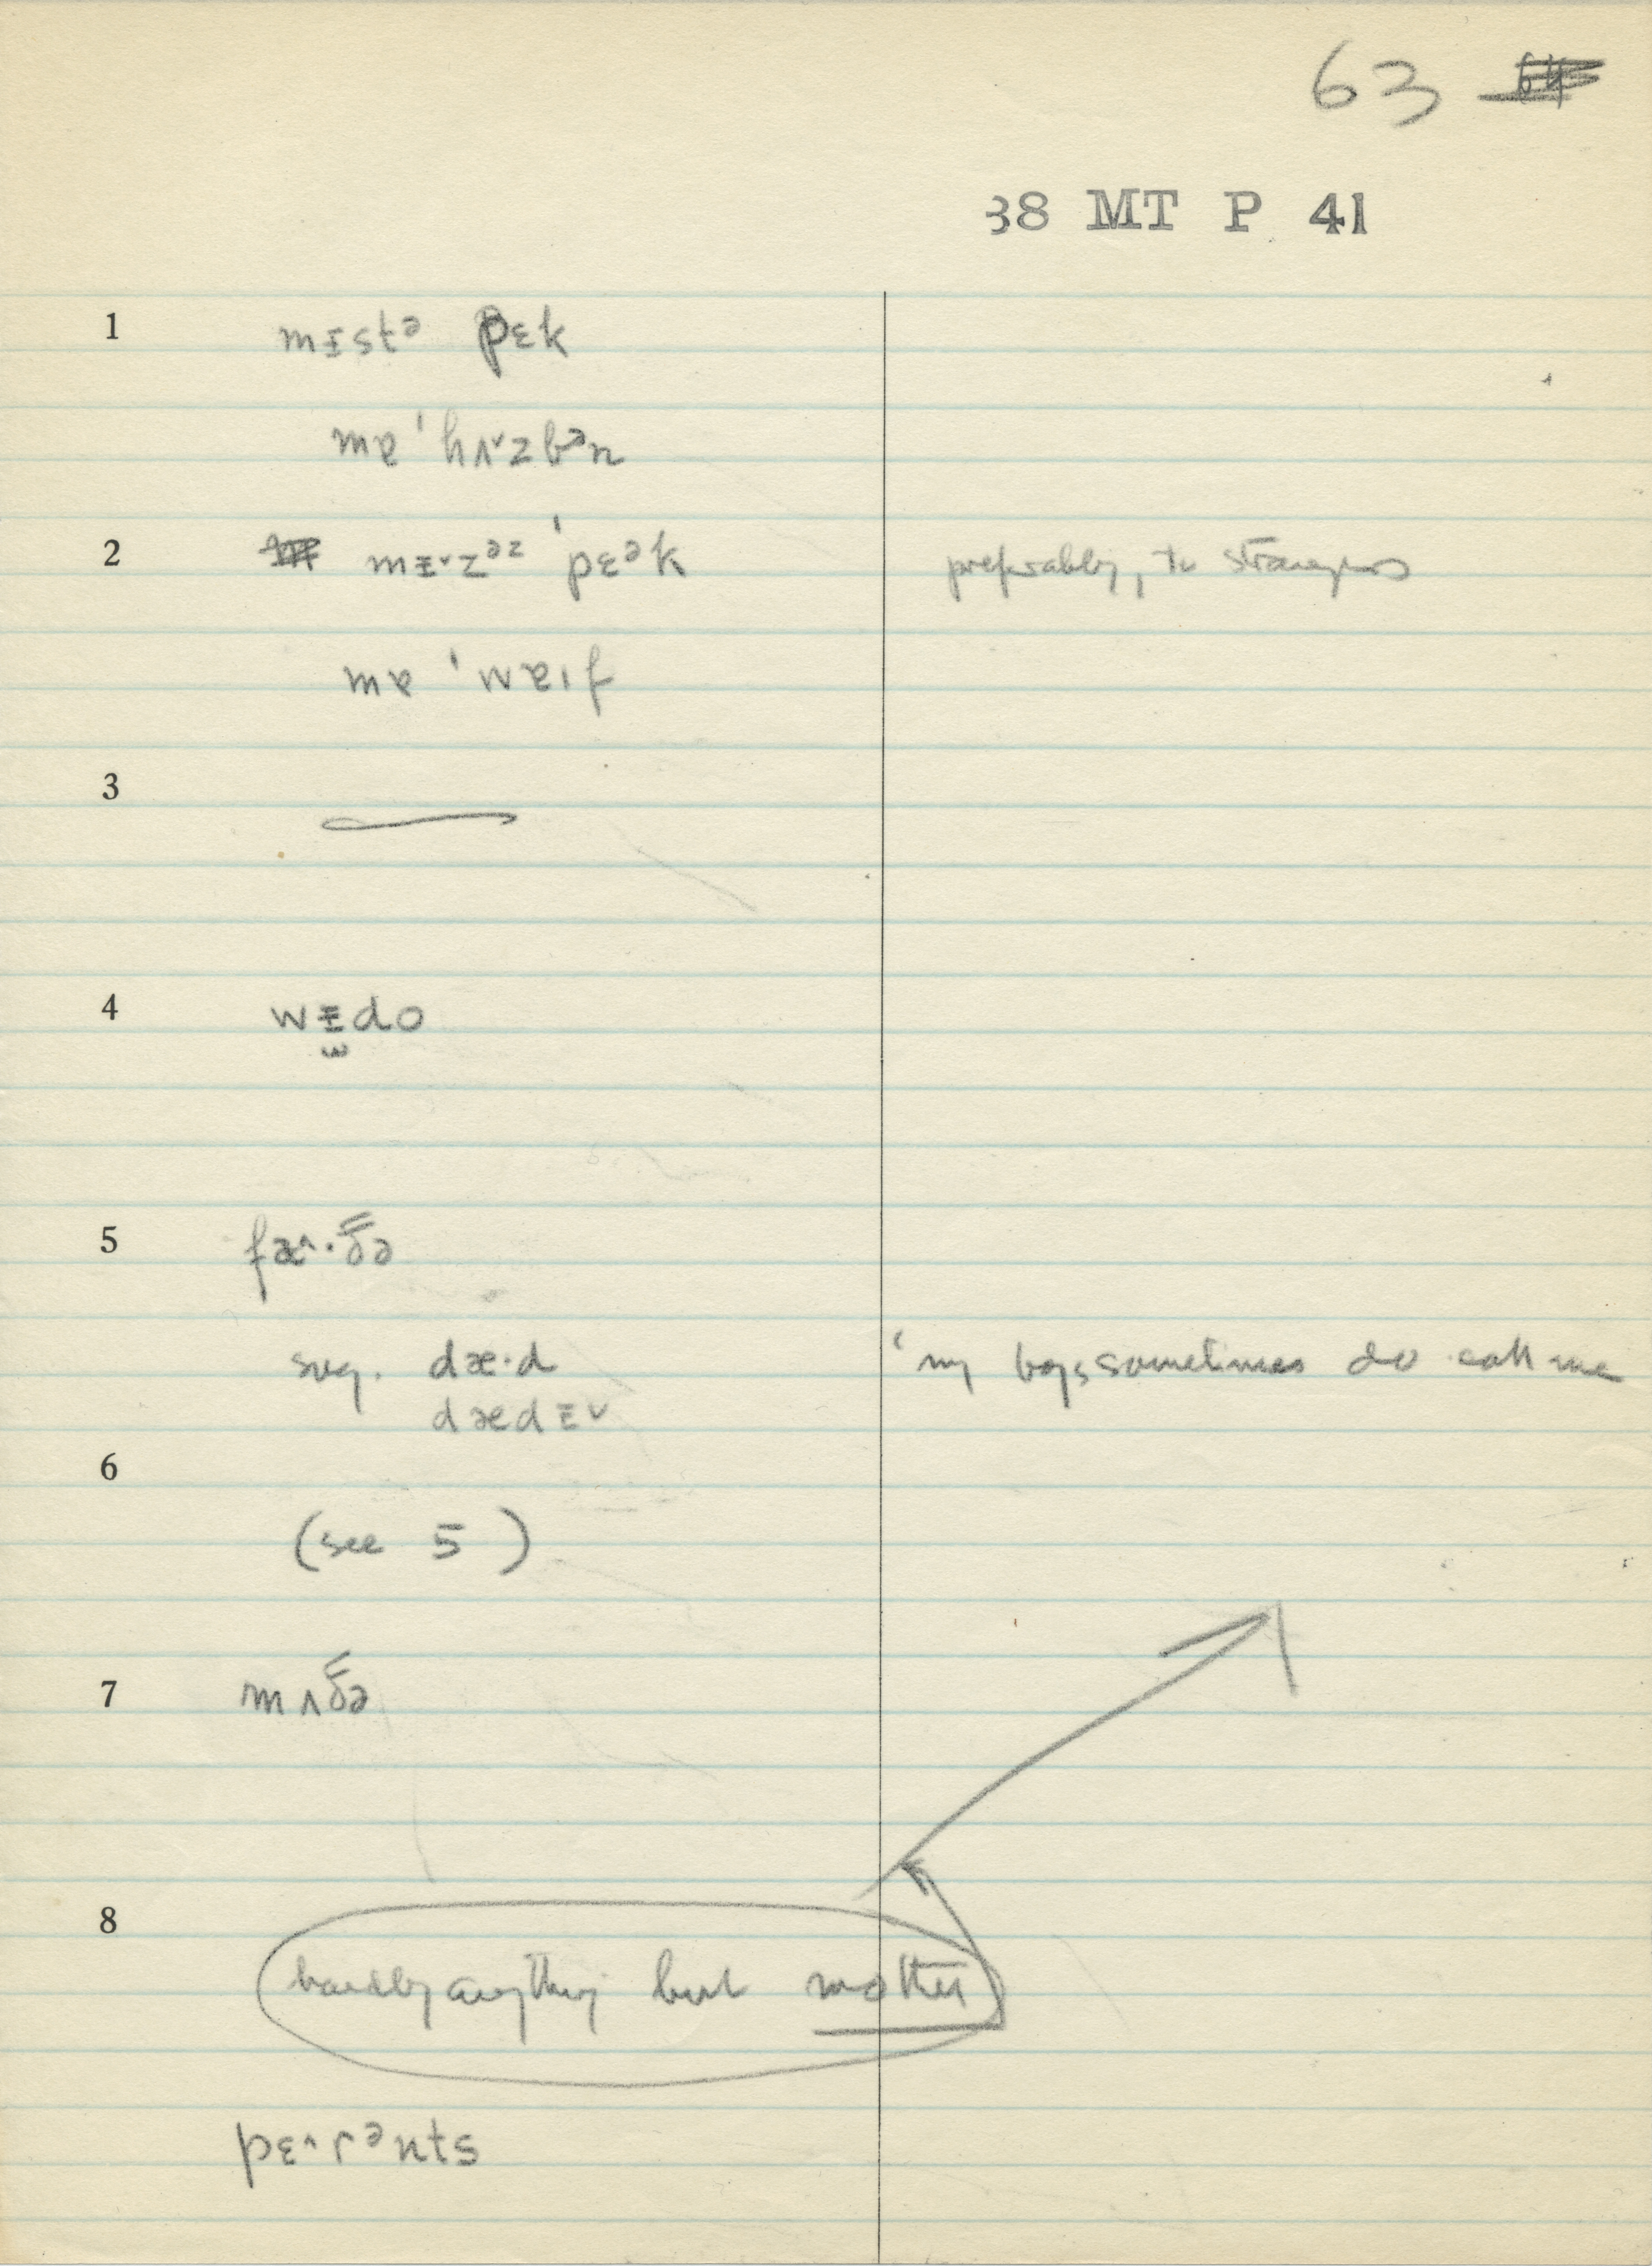 63
38 MT P 41
1 mɪstᵊ pɛk
mɐ ˈhʌ˅zbᵊn
2 mɪ˅zᵊᶻ ˈpɛᵊk preferably, to strangers
mɐ ˈwɐɪf
3 —
4 wɪdo
5 fæ^·ðə
sug. dæ·d ‘my boys sometimes do call me
dædɪ˅
6
(see 5)
7 mʌðə
8
hardly anything but mother
pɛ^·rᵊnts